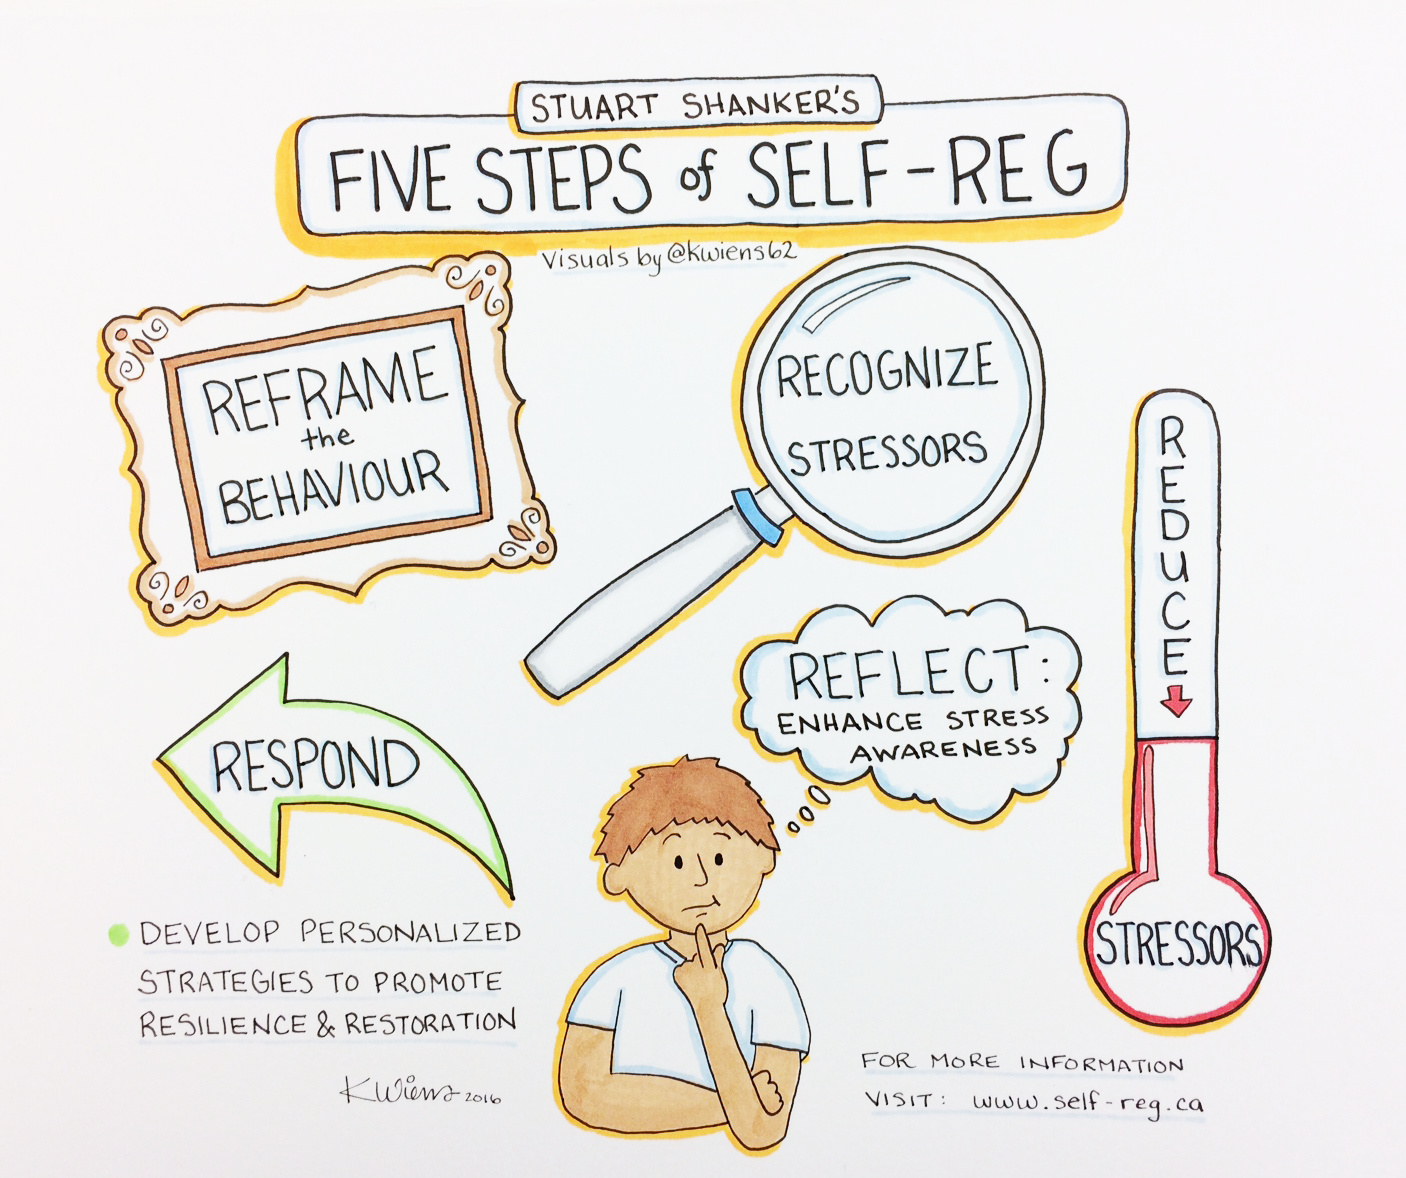 STUART SHANKER'S
FIVE STEPS of SELF-REG
Visuals by @kwiens62
REFRAME
the
BEHAVIOUR
RECOGNIZE
STRESSORS
REDUCE
STRESSORS
REFLECT:
ENHANCE STRESS
AWARENESS
RESPOND
DEVELOP PERSONALIZED
STRATEGIES TO PROMOTE
RESILIENCE & RESTORATION
KWiens 2016
FOR MORE INFORMATION
VISIT: www.self-reg.ca